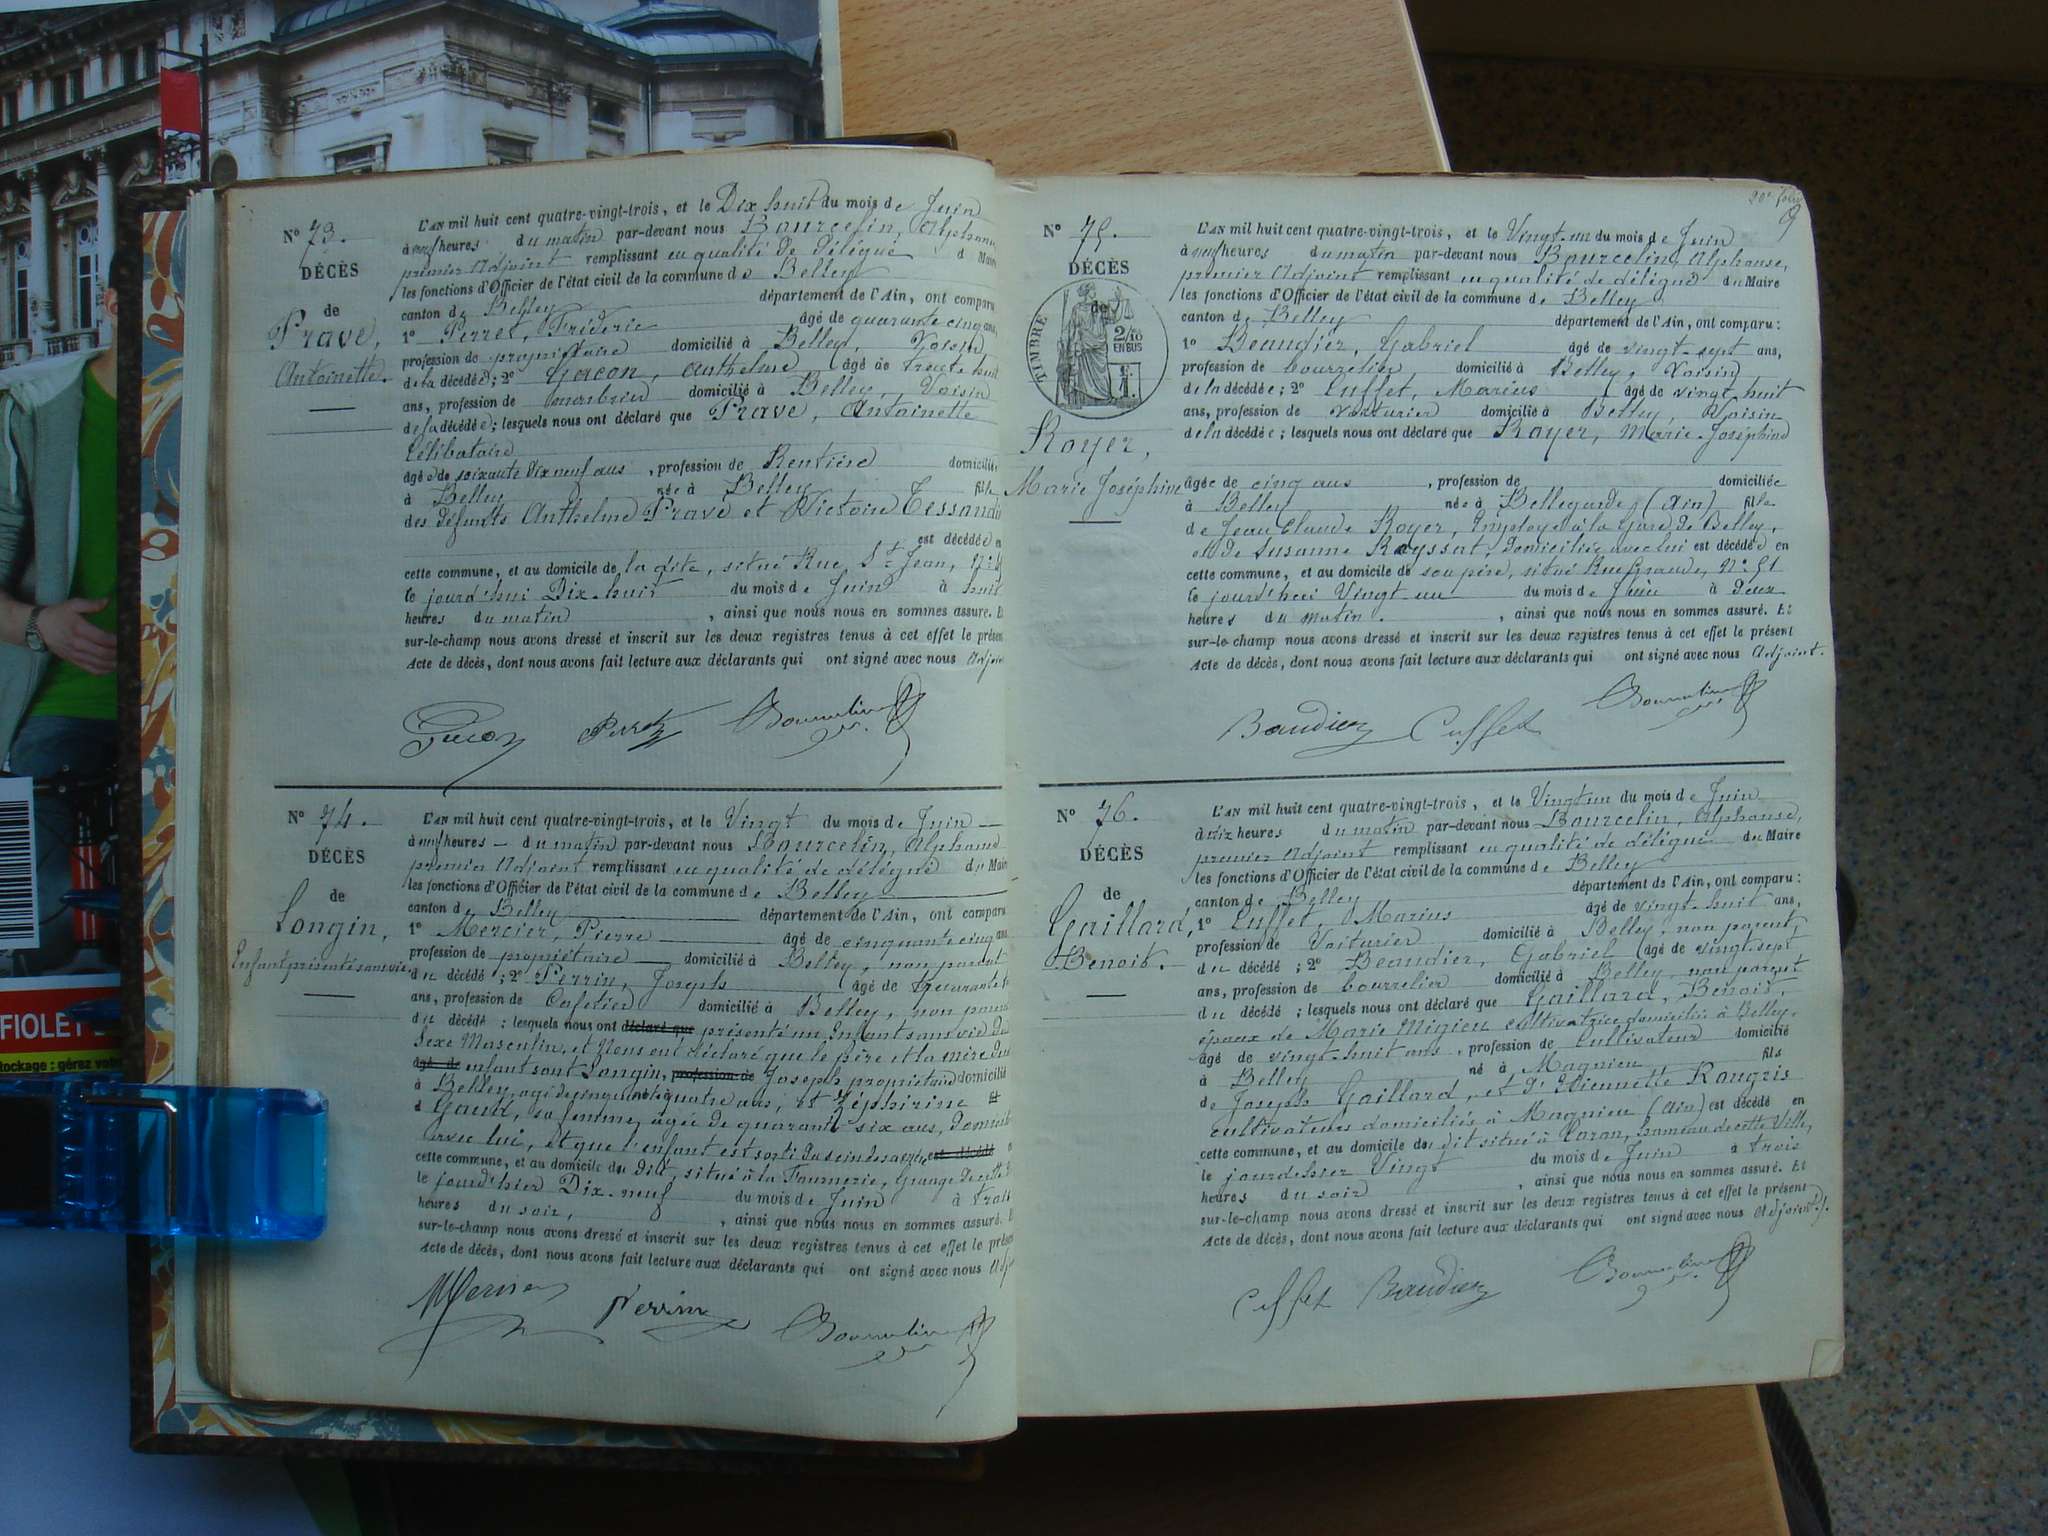 N° 73.
DÉCÈS
de
Prave,
Antoinette.
L'AN mil huit cent quatre-vingt-trois, et le Dix huit du mois de Juin
à neuf heures du matin par-devant nous Bourcelin, Alphonse,
premier Adjoint remplissant en qualité de délégué d Maire
les fonctions d'Officier de l'état civil de la commune de Belley
canton de Belley département de l'Ain, ont comparu
1° Perret, Fréderic âgé de quarante cinq ans,
profession de propriétaire domicilié à Belley, Voisin
de la décédée; 2° Gacon, Anthelme (âgé de trente huit
ans, profession de domicilié à Belley, Voisin
de la décédée); lesquels nous ont déclaré que Prave, Antoinette
Célibataire
âgée de soixante dix neuf ans, profession de Rentière domiciliée
à Belley née à Belley fille
des défunts Anthelme Prave et Victoire
est décédée en
cette commune, et au domicile de la dite, situé Rue St Jean,
le jourd'hui Dix-huit du mois de Juin à huit
heures du matin, ainsi que nous nous en sommes assuré. Et
sur-le-champ nous avons dressé et inscrit sur les deux registres tenus à cet effet le présent
Acte de décès, dont nous avons fait lecture aux déclarants qui ont signé avec nous Adjoin
Gacon Perret Bourcelin
N° 74.
DÉCÈS
de
Longin,
Enfant présenté sans vie
L'AN mil huit cent quatre-vingt-trois, et le Vingt du mois de Juin
à neuf heures du matin par-devant nous Bourcelin, Alphonse
premier Adjoint remplissant en qualité de délégué du Maire
les fonctions d'Officier de l'état civil de la commune de Belley
canton de Belley département de l'Ain, ont comparu
1° Mercier, Pierre âgé de cinquante cinq ans
profession de propriétaire domicilié à Belley, non parent
du décédé; 2° Perrin, Joseph (âgé de quarante
ans, profession de Cafetier domicilié à Belley, non parent
du décédé; lesquels nous ont déclaré que présenté un Enfant sans vie du
Sexe Masculin, et Nous ont déclaré que le père et la mère du
âgé de enfant sont Longin, profession de Joseph propriétaire domicilié
à Belley, âgé de cinquante quatre ans, et Zéphirine
sa femme, âgée de quarante six ans, domiciliée
avec lui, Et que l'enfant est sorti du sein de sa mère est décédé
cette commune, et au domicile du Dit, situé à la Fournerie, Grange de cette
le jourd'hier Dix-neuf du mois de Juin à trois
heures du soir, ainsi que nous nous en sommes assuré. E
sur-le-champ nous avons dressé et inscrit sur les deux registres tenus à cet effet le présen
Acte de décès, dont nous avons fait lecture aux déclarants qui ont signé avec nous Adj
Mercier Perrin Bourcelin
20e folio
N° 75.
DÉCÈS
de
TIMBRE
2/10
EN SUS
Royer,
Marie Joséphine
L'AN mil huit cent quatre-vingt-trois, et le Vingt-un du mois de Juin
à neuf heures du matin par-devant nous Bourcelin, Alphonse,
premier Adjoint remplissant en qualité de délégué du Maire
les fonctions d'Officier de l'état civil de la commune de Belley
canton de Belley département de l'Ain, ont comparu:
1° Beaudier, Gabriel âgé de vingt-sept ans,
profession de bourrelier domicilié à Belley, Voisin
de la décédée; 2° Cuffet, Marius (âgé de vingt huit
ans, profession de voiturier domicilié à Belley, Voisin
de la décédée; lesquels nous ont déclaré que Royer, Marie-Joséphine
âgée de cinq ans, profession de domiciliée
à Belley née à Bellegarde (Ain) fille
de Jean Claude Royer, Employé à la Gare de Belley,
et de Susanne Royssat, domiciliée avec lui est décédée en
cette commune, et au domicile de son père, situé Rue Grande, N° 51
le jourd'hui Vingt-un du mois de Juin à Deux
heures du matin., ainsi que nous nous en sommes assuré. Et
sur-le-champ nous avons dressé et inscrit sur les deux registres tenus à cet effet le présent
Acte de décès, dont nous avons fait lecture aux déclarants qui ont signé avec nous Adjoint.
Baudier Cuffet Bourcelin
N° 76.
DÉCÈS
de
Gaillard,
Benoit.
L'AN mil huit cent quatre-vingt-trois, et le Vingt un du mois de Juin
à dix heures du matin par-devant nous Bourcelin, Alphonse,
premier Adjoint remplissant en qualité de délégué du Maire
les fonctions d'Officier de l'état civil de la commune de Belley
canton de Belley département de l'Ain, ont comparu:
1° Cuffet, Marius âgé de vingt-huit ans,
profession de Voiturier domicilié à Belley, non parent,
du décédé; 2° Beaudier, Gabriel (âgé de vingt-sept
ans, profession de bourrelier domicilié à Belley, non parent
du décédé; lesquels nous ont déclaré que Gaillard, Benoit,
époux de Marie Migieu cultivatrice domiciliée à Belley,
âgé de vingt-huit ans, profession de Cultivateur domicilié
à Belley né à Magnieu fils
de Joseph Gaillard, et d'Etiennette Rongris
Cultivateurs domiciliés à Magnieu (Ain) est décédé en
cette commune, et au domicile du dit situé à hameau de cette Ville,
le jourd'hier Vingt du mois de Juin à trois
heures du soir, ainsi que nous nous en sommes assuré. Et
sur-le-champ nous avons dressé et inscrit sur les deux registres tenus à cet effet le présent
Acte de décès, dont nous avons fait lecture aux déclarants qui ont signé avec nous Adjoint
Cuffet Baudier Bourcelin
FIOLET
tockage : gérez vot